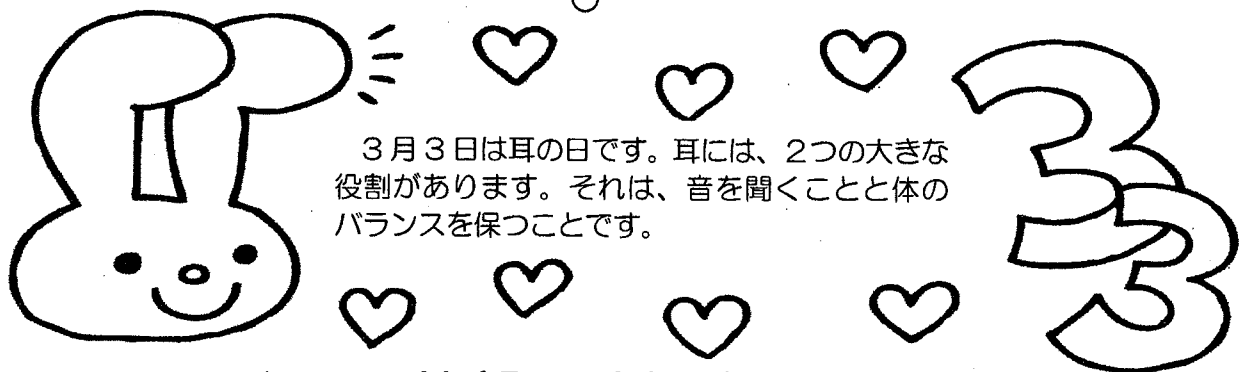 ３月３日は耳の日です。耳には、２つの大きな
役割があります。それは、音を聞くことと体の
バランスを保つことです。
３
３